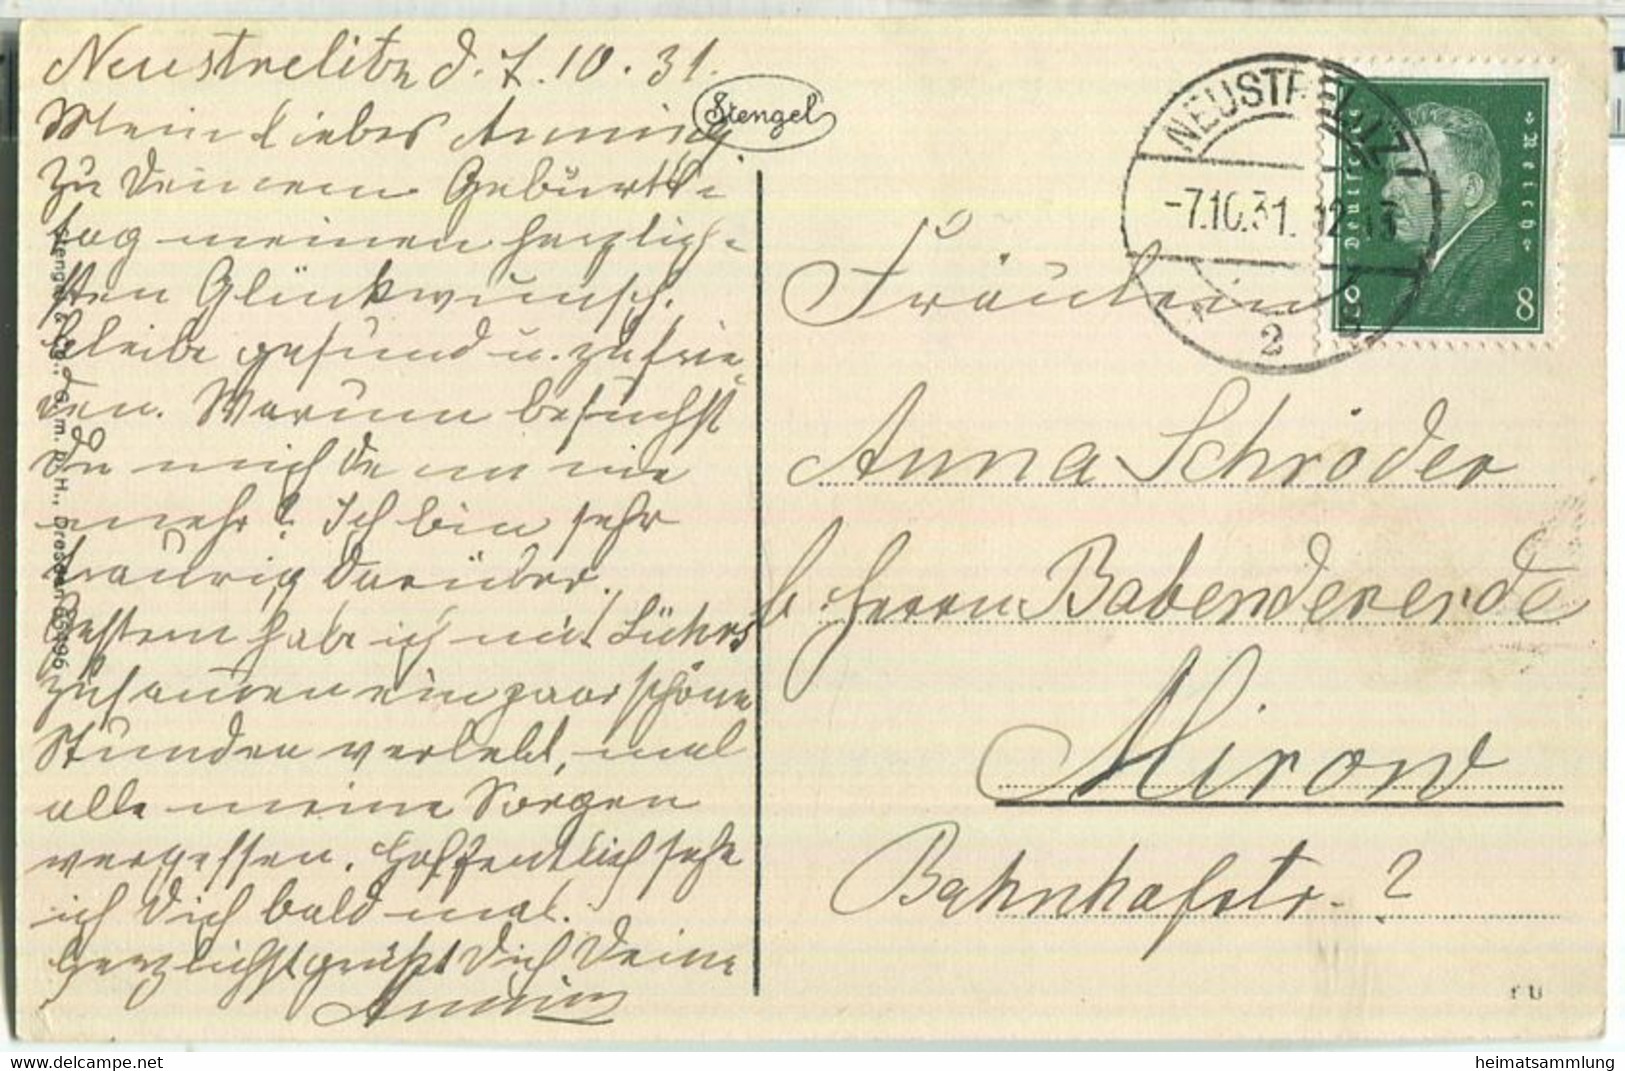 Neustrelitz d. 7.10.31.
Mein liebes Anning
Zu Deinem Geburts-
tag meinen herzlich-
sten Glückwunsch.
bleibe gesund u. zufrie-
den. Warum besuchst
Du mich denn nie
mehr? Ich bin sehr
traurig darüber.
Gestern habe ich mit Lührs
zusammen ein paar schöne
Stunden verlebt, mal
alle meine Sorgen
vergessen. Hoffentlich sehe
ich Dich bald mal.
Herzlichst grüßt Dich Deine
Stengel
Stengel & Co., G. m. b. H., Dresden
NEUSTRELITZ
-7.10.31. 12-13
2
Deutsches Reich
8
Fräulein
Anna Schröder
b. Herrn Babendererde
Mirow
Bahnhofstr. ?
delcampe.net
heimatsammlung